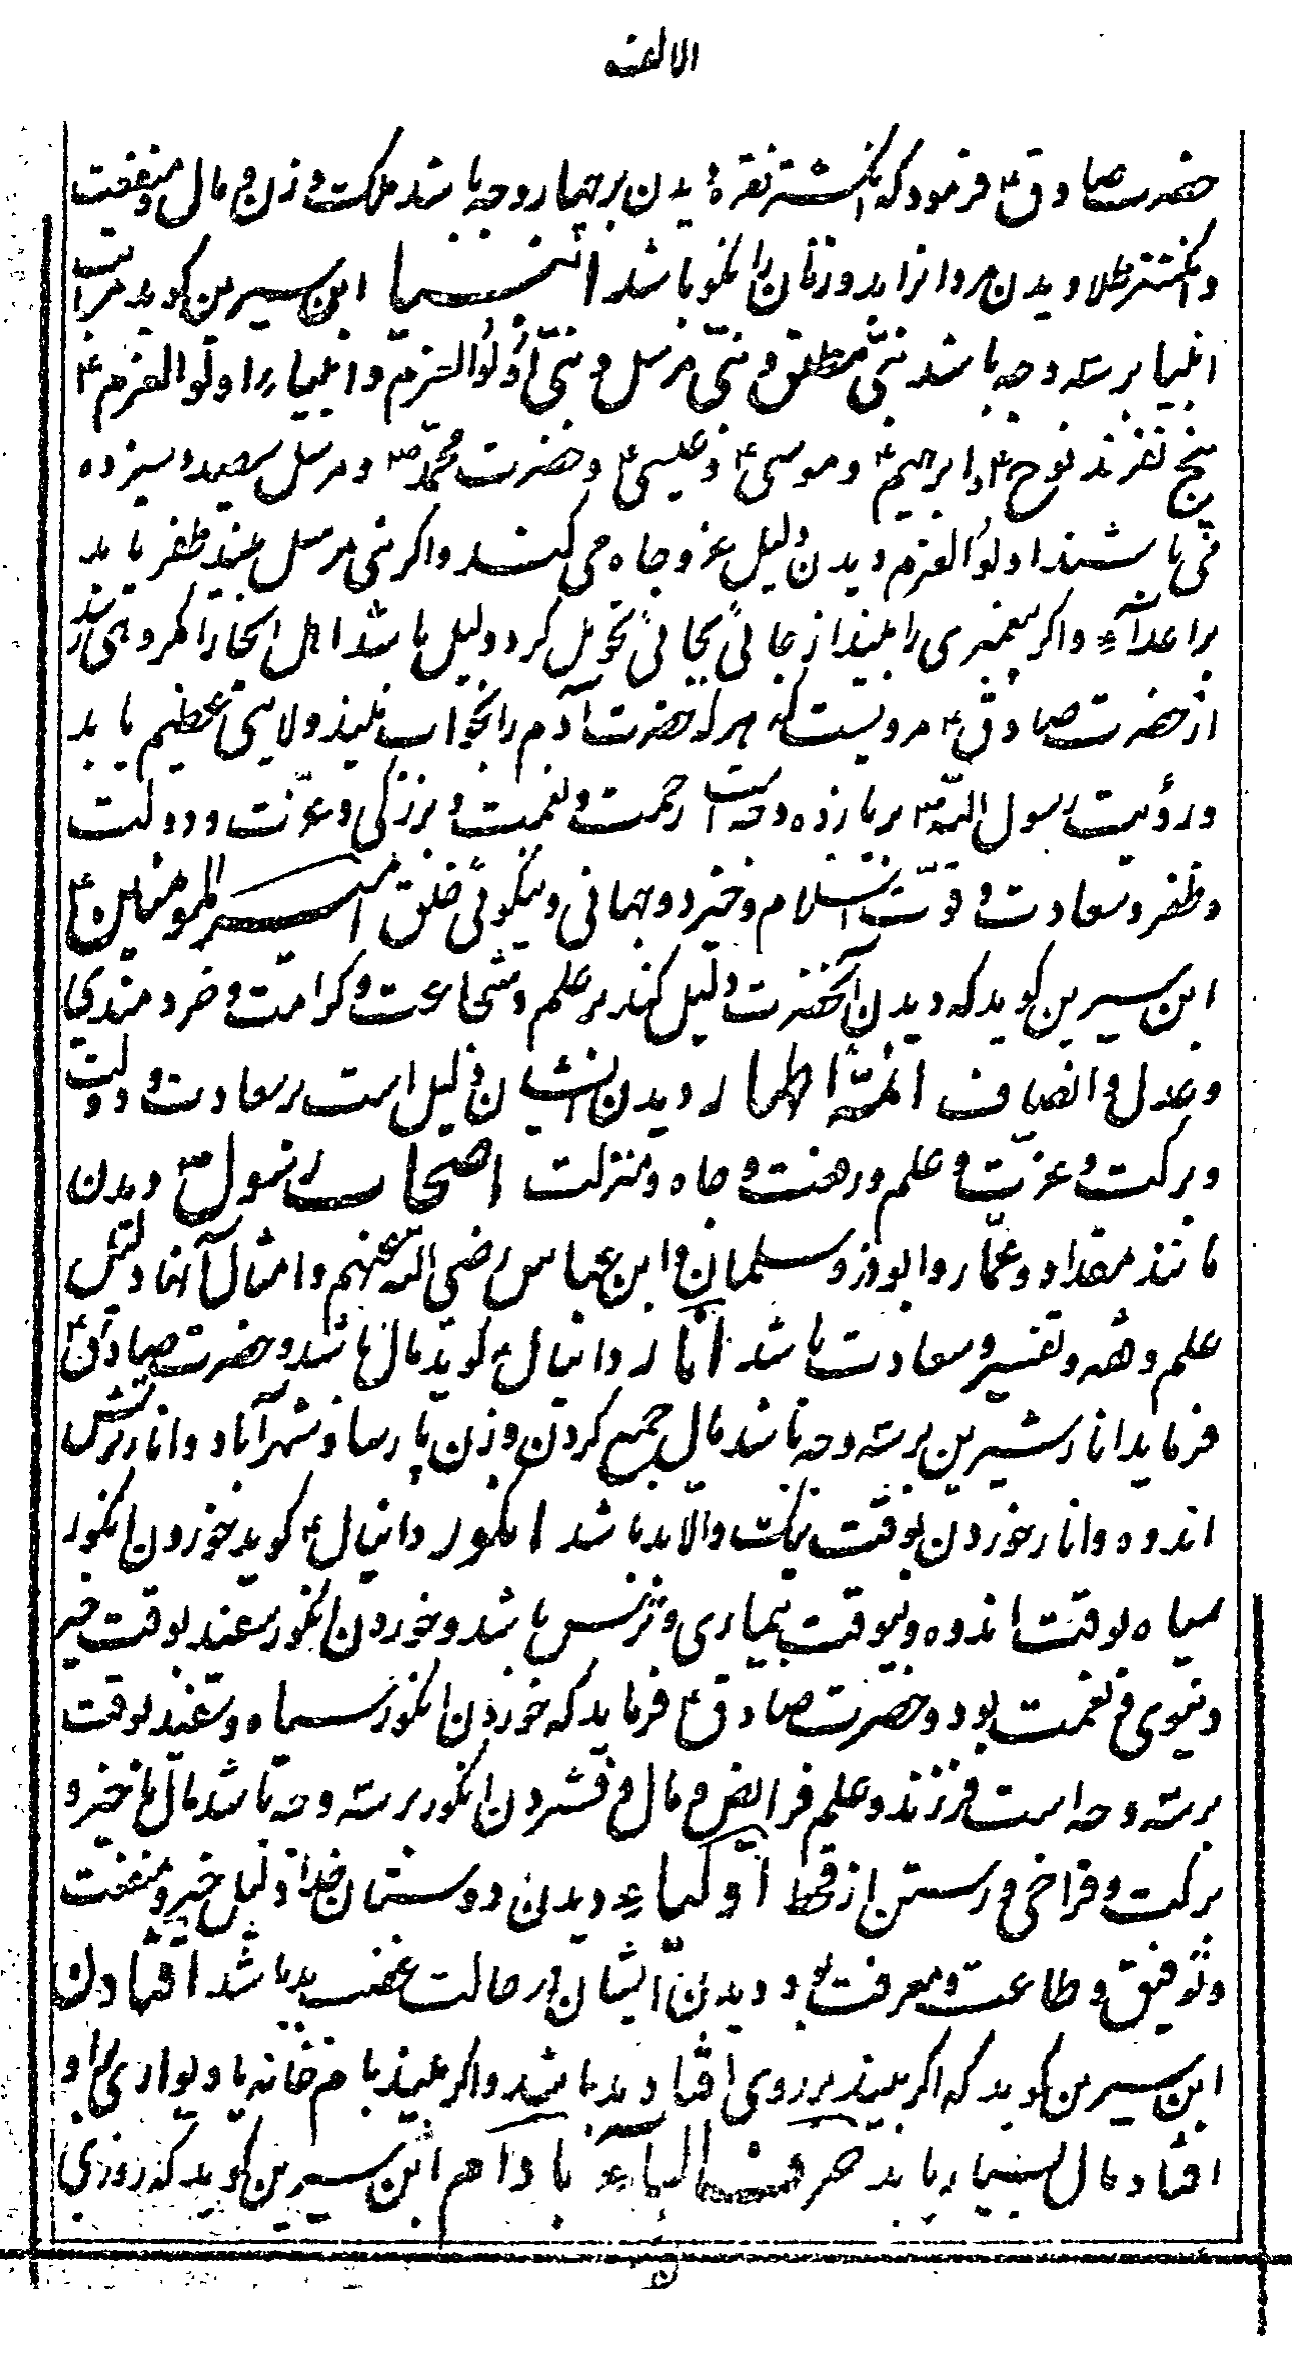 الالف
حضرت صادق ع فرمود که انگشتر نقره دیدن بر چهار وجه باشد ملکت و زن و مال و منفعت
و انگشتر طلا دیدن مردانرا بد و زنان را نکو باشد انبیا ابن سیرین کوید مراتب
انبیا بر سه وجه باشد نبی مطلق و نبی مرسل و نبی اولوالعزم و انبیاء اولوالعزم ع
پنج نفرند نوح ع و ابرهیم ع و موسی ع و عیسی ع و حضرت محمد ص و مرسل سیصد و سیزده
می باشند اولوالعزم دیدن دلیل عز و جاه می کند و اکر نبی مرسل بیند ظفر یابد
بر اعداء و اکر پیغمبری را بیند از جائی بجائی تحویل کرد دلیل باشد اهل انجا را مکروهی رسد
از حضرت صادق ع مرویست که هر که حضرت آدم را بخواب بیند ولایتی عظیم یابد
و رؤیت رسول الله ص بر یازده وجه است رحمت و نعمت و بزرکی و عزت و دولت
و ظفر و سعادت و قوت اسلام و خیر دو جهانی و نیکوئی خلق امیرالمومنین ع
ابن سیرین کوید که دیدن آنحضرت دلیل کند بر علم و شجاعت و کرامت و خردمندی
و عدل و انصاف ائمه اطهار دیدن ایشان دلیل است بر سعادت و دولت
و برکت و عزت و علم و رفعت و جاه و منزلت اصحاب رسول ص دیدن
مانند مقداد و عمار و ابوذر و سلمان و ابن عباس رضی الله عنهم و امثال آنها دلیل
علم و فقه و تفسیر و سعادت باشد انار دانیال ع کوید مال باشد و حضرت صادق ع
فرماید انار شیرین بر سه وجه باشد مال جمع کردن و زن پارسا و شهر آباد و انار ترش
اندوه و انار خوردن بوقت نیک والا بد باشد انکور دانیال ع کوید خوردن انکور
سیاه بوقت اندوه و بیوقت بیماری و ترس باشد و خوردن انکور سفید بوقت خیر
دنیوی و نعمت بود و حضرت صادق ع فرماید که خوردن انکور سیاه و سفید بوقت
بر سه وجه است فرزند و علم فرایض و مال و فشردن انکور بر سه وجه باشد مال با خیر و
برکت و فراخی و رستن از قحط اولیاء دیدن دوستان خدا دلیل خیر و منفعت
و توفیق و طاعت و معرفت بود و دیدن ایشان در حالت غضب بد باشد افتادن
ابن سیرین کوید که اکر بیند بر روی افتاد بد باشد و اکر بیند بام خانه یا دیواری بر او
افتاد مال بسیار یابد حرف الباء بادام ابن سیرین کوید که روزی